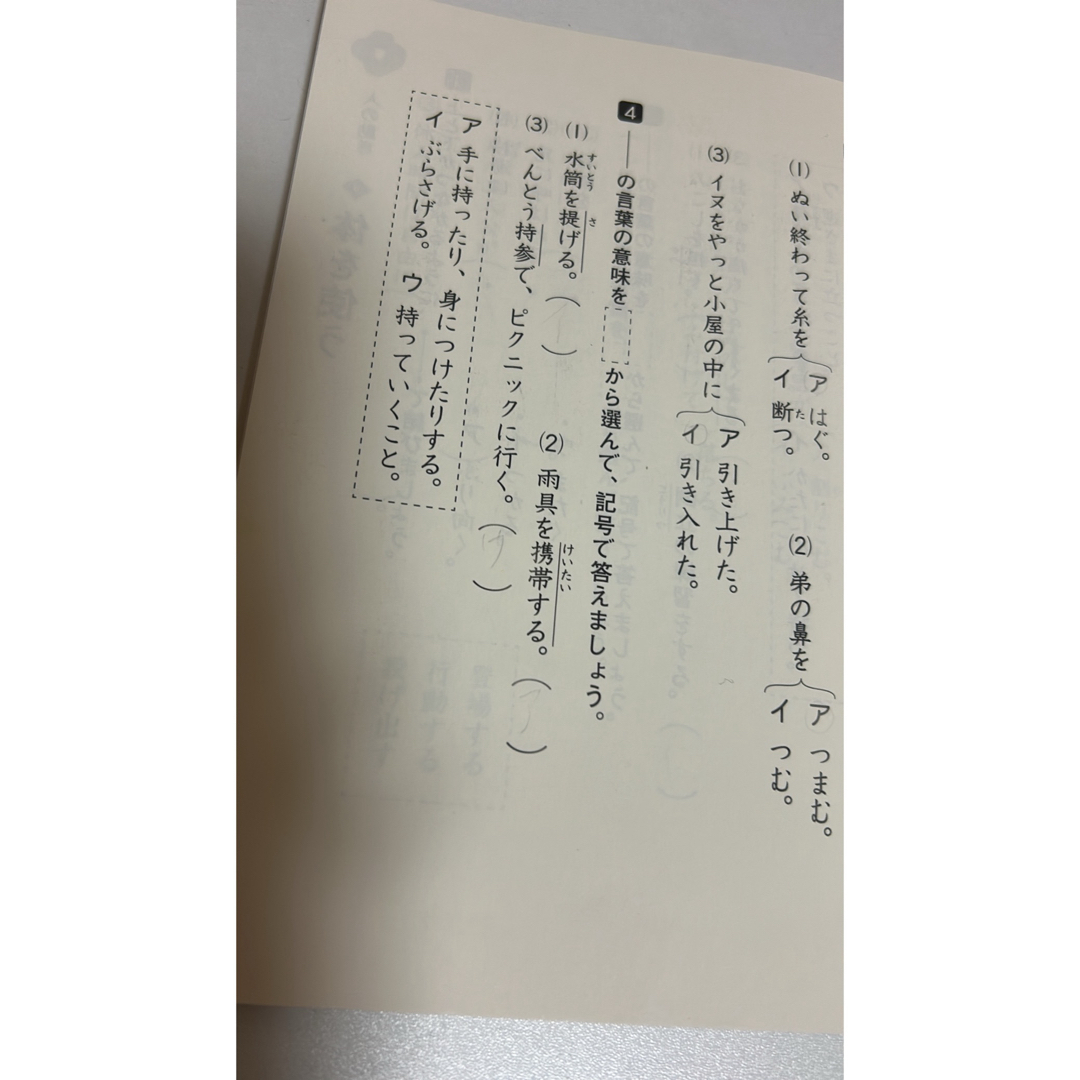 (1) ぬい終わって糸を
ア はぐ。
イ 断つ。
(2) 弟の鼻を
ア つまむ。
イ つむ。
(3) イヌをやっと小屋の中に
ア 引き上げた。
イ 引き入れた。
4 ――の言葉の意味を から選んで、記号で答えましょう。
(1) 水筒を提げる。( )
(2) 雨具を携帯する。( )
(3) べんとう持参で、ピクニックに行く。( )
ア 手に持ったり、身につけたりする。
イ ぶらさげる。 ウ 持っていくこと。